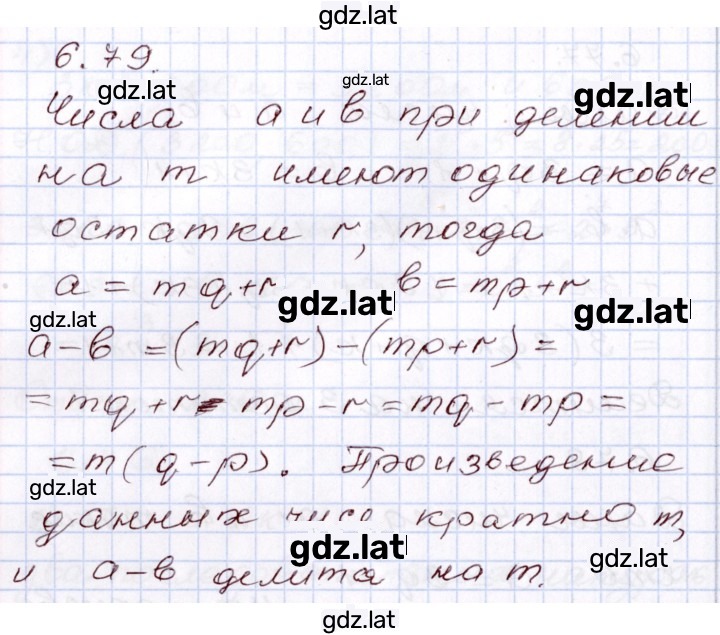 gdz.lat
6.79.
gdz.lat gdz.lat gdz.lat
Числа а и в при делении
на m имеют одинаковые
остатки r, тогда
a = mq+r в = mp+r
gdz.lat gdz.lat gdz.lat
a-в = (mq+r)-(mp+r) =
= mq+r- mp-r = mq - mp =
= m(q-p). Произведение
gdz.lat
данных кратно m,
gdz.lat gdz.lat
и a-в делита на m.
gdz.lat